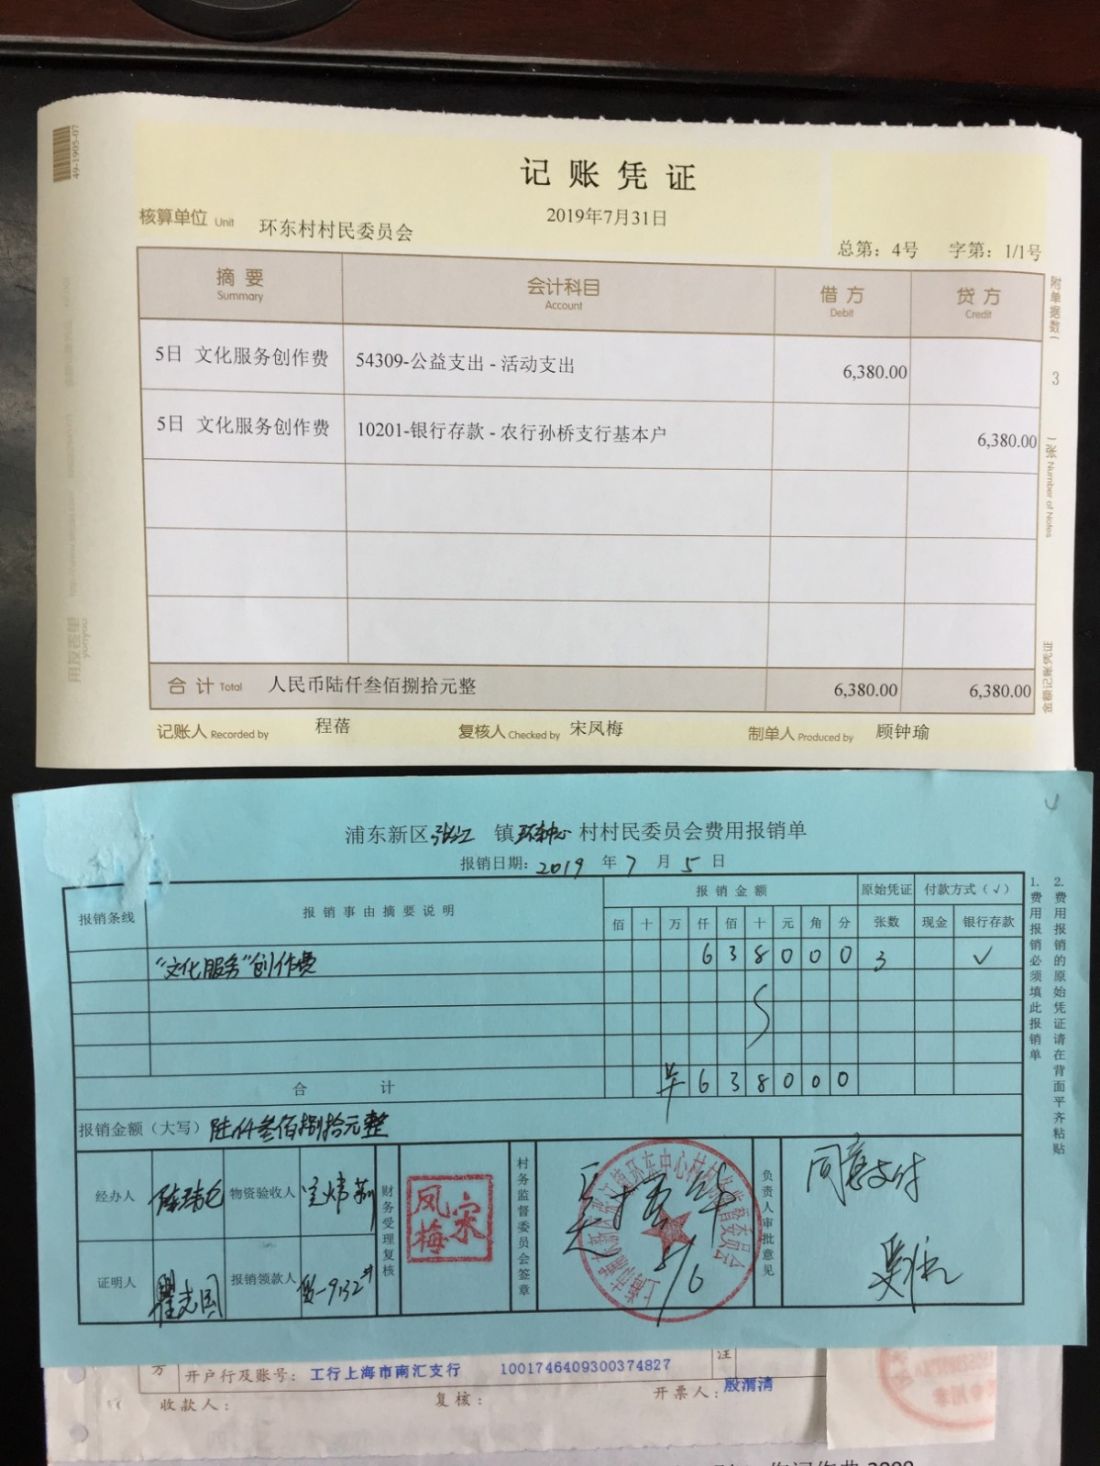 49-1905-07
记账凭证
2019年7月31日
核算单位 Unit 环东村村民委员会
总第：4号 字第：1/1号
摘要 会计科目 借方 贷方
Summary Account Debit Credit
5日 文化服务创作费 54309-公益支出 - 活动支出 6,380.00
5日 文化服务创作费 10201-银行存款 - 农行孙桥支行基本户 6,380.00
合计 Total 人民币陆仟叁佰捌拾元整 6,380.00 6,380.00
记账人 Recorded by 程蓓 复核人 Checked by 宋凤梅 制单人 Produced by 顾钟瑜
附单据数 3 张 Number of Notes
金额记账凭证
用友表单
yonyou
浦东新区张江 镇环东中心村村民委员会费用报销单
报销日期：2019 年 7 月 5 日
报销条线 报销事由摘要说明 报销金额 原始凭证 付款方式（√）
佰 十 万 仟 佰 十 元 角 分 张数 现金 银行存款
“文化服务”创作费 6 3 8 0 0 0 3 √
合 计 ¥ 6 3 8 0 0 0
报销金额（大写） 陆仟叁佰捌拾元整
经办人 物资验收人
财务受理复核
宋凤梅
村务监督委员会签章
负责人审批意见 同意支付
证明人 瞿志国 报销领款人
1.费用报销必须填此报销单
2.费用报销的原始凭证请在背面平齐粘贴
方 开户行及账号： 工行上海市南汇支行 1001746409300374827 注
收款人： 复核： 开票人： 殷渭清